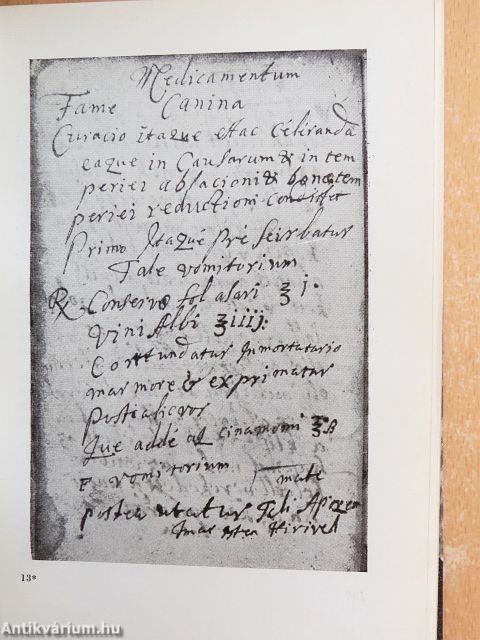 Medicamentum
Fame Canina
Curacio Itaque estac Celiranda
eaque in Causarum & in tem
periei ablacioni & bonæ tem
periei reductioni consistet
Primo Itaque Pre scirbatur
Tale vomitorium
Rx. Conserve fol asari ʒ j.
Vini Albi ʒ iiij.
Contundatur In mortatario
marmore & exprimatur
Que adde aq cinamomi
F vomitorium mate
postea utatur Tali
13*
Antikvárium.hu